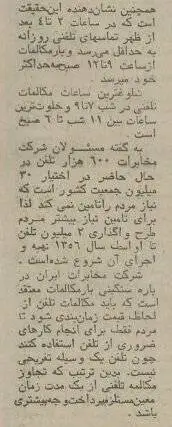 همچنین نشان‌دهنده این‌حقیقت
است که در ساعات ۲ تا ٤ بعد
از ظهر تماسهای تلفنی روزانه
به حداقل می‌رسد و بارمکالمات
ازساعت ۹ تا ۱۲ صبح‌به‌حداکثر
خود میرسد.
شلوغترین ساعات مکالمات
تلفنی در شب ۷ تا ۹ و خلوت‌ترین
ساعات بین ۱۱ شب تا ٦ صبح
است.
به گفته مسئولان شرکت
مخابرات ٦۰۰ هزار تلفن در
حال حاضر در اختیار ۳۰
میلیون جمعیت کشور است که
نیاز مردم راتامین نمی کند لذا
برای تامین نیاز بیشتر مردم
طرح واگذاری ۲ میلیون تلفن
تا اواسط سال ۱۳٥٦ تهیه و
اجرای آن شروع شده‌است.
شرکت مخابرات ایران در
باره سنگینی بارمکالمات معتقد
است که باید مکالمات تلفن از
لحاظ، قیمت زمان‌بندی شود تا
مردم فقط برای انجام کارهای
ضروری از تلفن استفاده کنند
چون تلفن یک وسیله تفریحی
نیست. بدین ترتیب که تجاوز
مکالمه تلفنی از یک مدت زمان
معین‌مستلزم‌پرداخت‌وجه‌بیشتری
باشد.